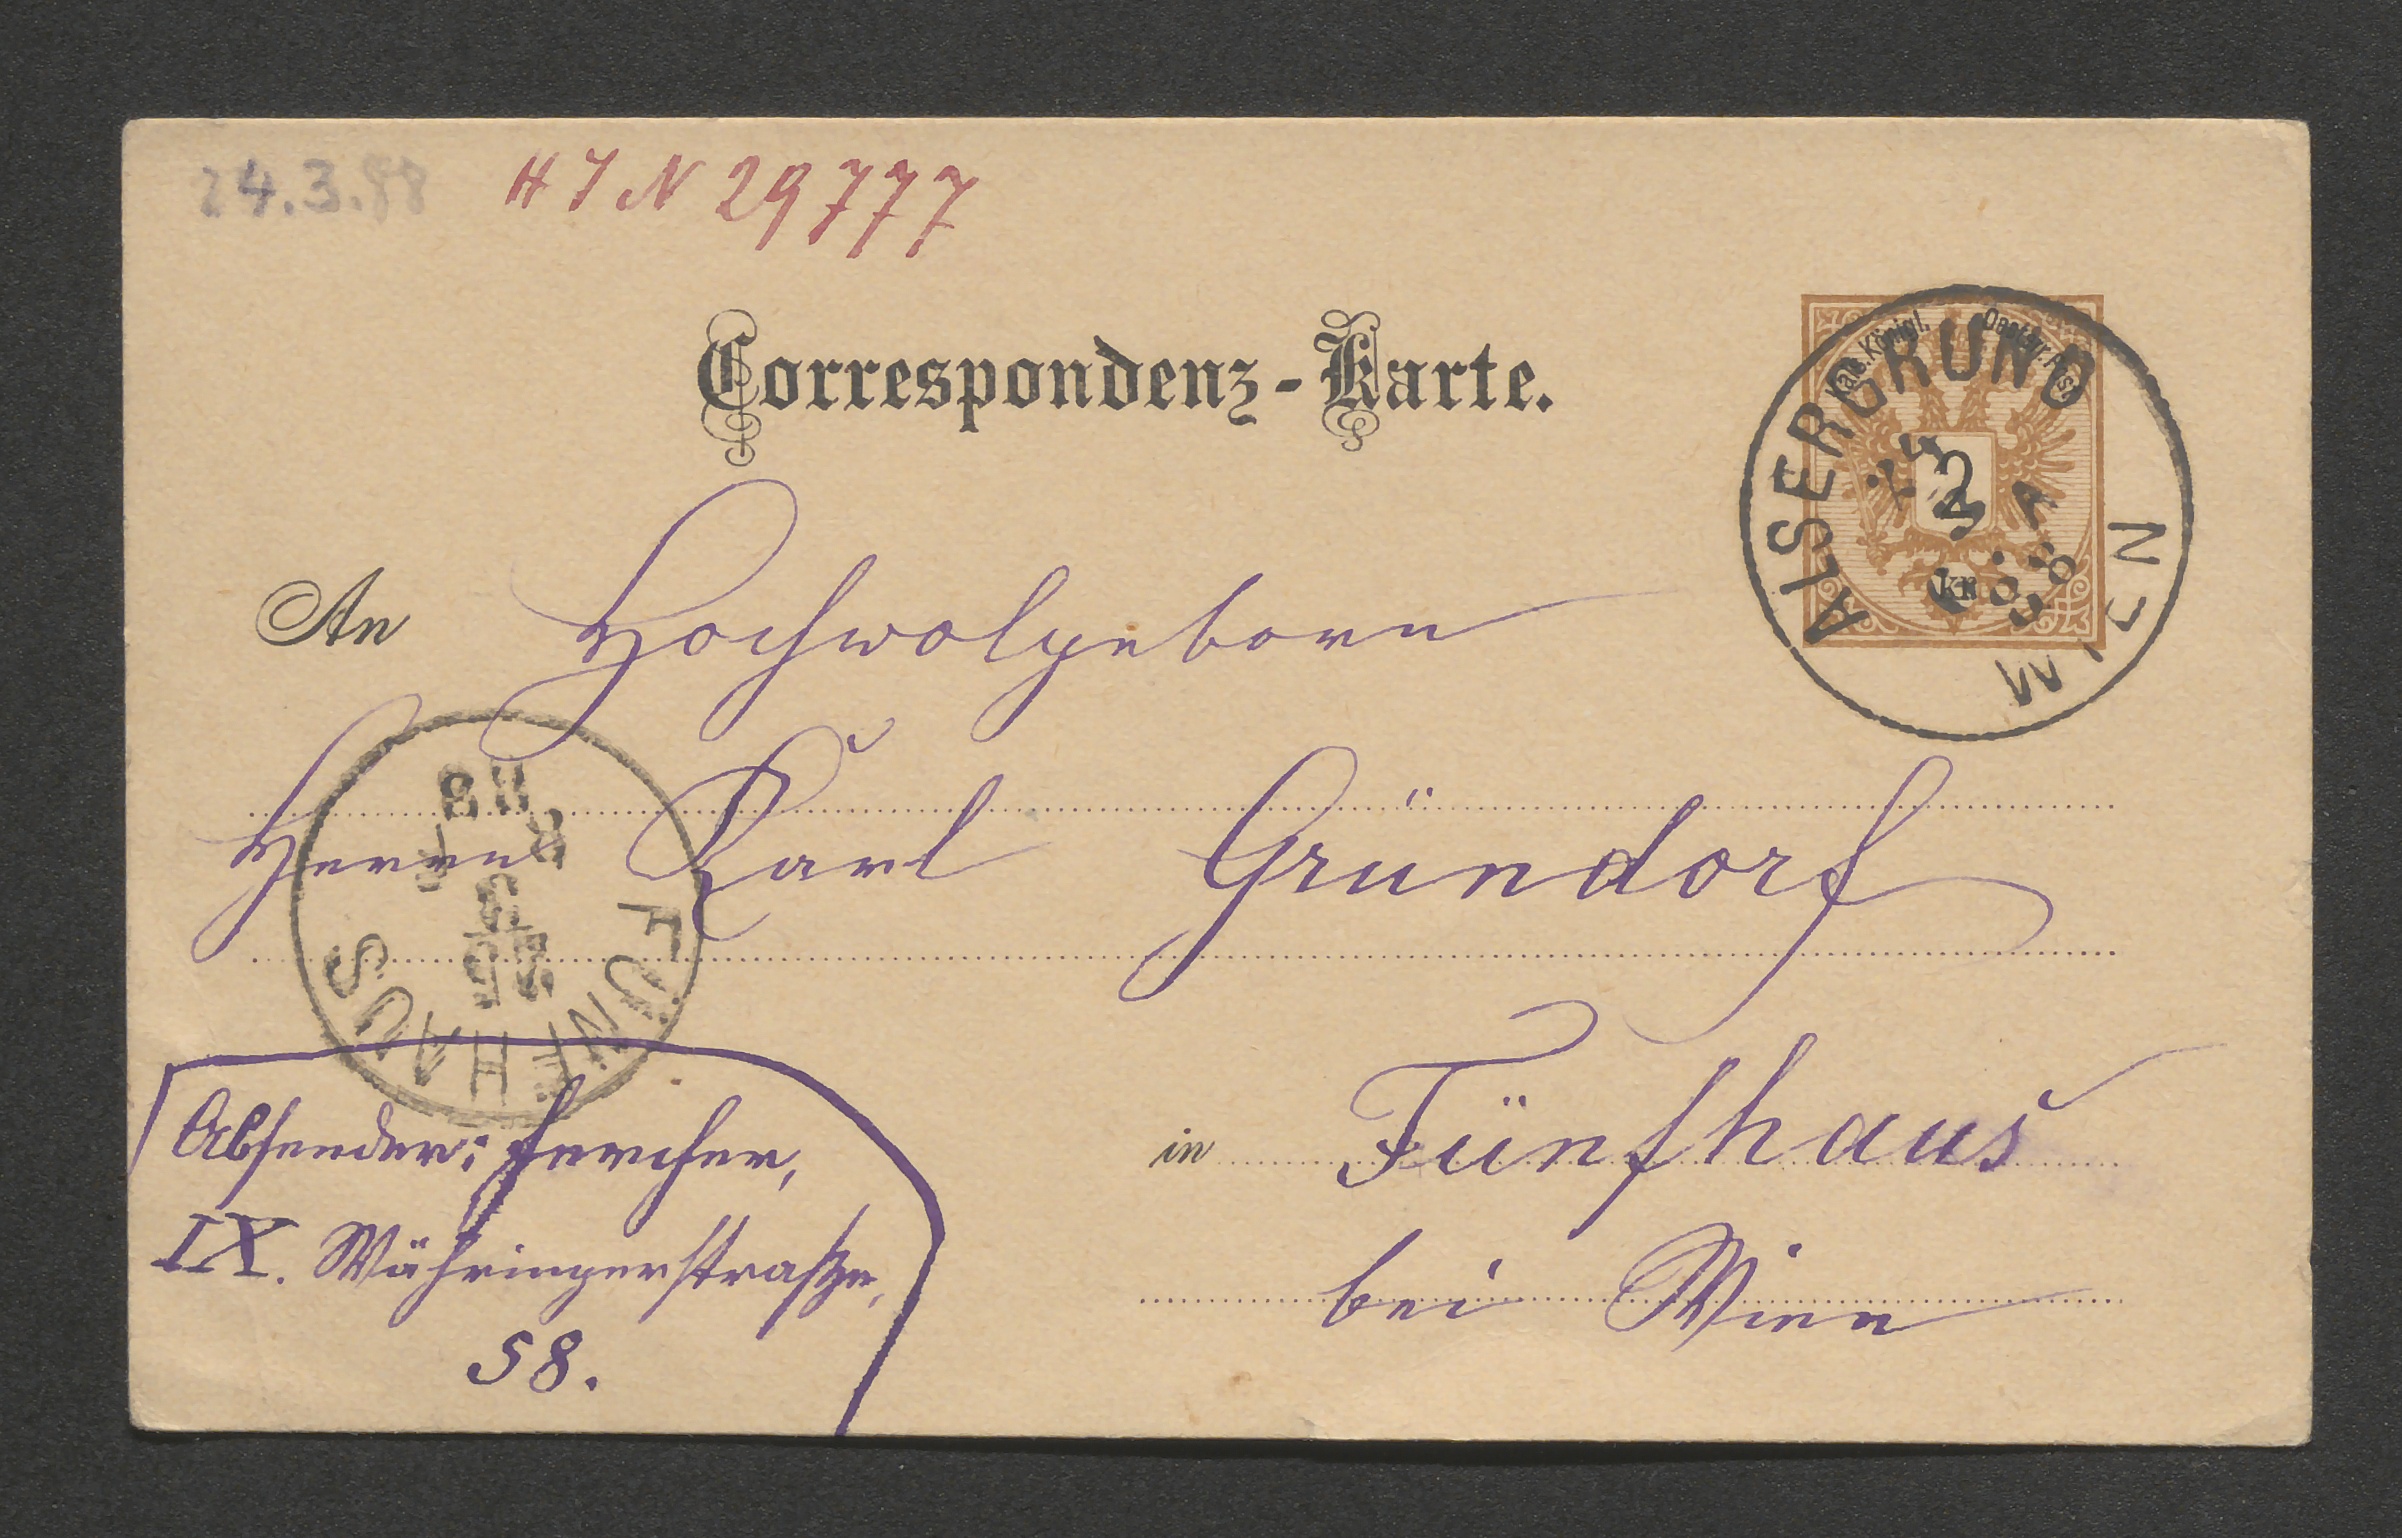 24.3.88 HIN 29777
Correspondenz-Karte.
Kais. Königl. Oesterr. Post
2
kr
ALSERGRUND
WIEN
24
3
88
An Hochwolgeborn
Herrn Karl Gründorf
FÜNFHAUS
88
25
3
in Fünfhaus
bei Wien
Absender: Fercher,
IX. Währingerstraße,
58.